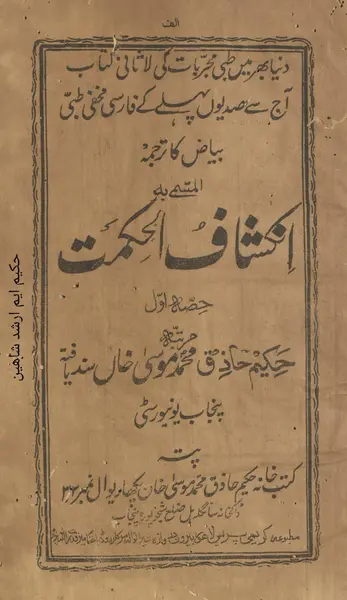 الف
دنیا بھر میں طبی مجربات کی لاثانی کتاب
آج سے صدیوں پہلے کے فارسی مخفی طبی
بیاض کا ترجمہ
المتسمے بہ
انکشاف الحکمت
حصہ اول
مرتبہ
حکیم حاذق محمد موسیٰ خاں سند یافتہ
پنجاب یونیورسٹی
پتہ
کتب خانہ حکیم حاذق محمد موسیٰ خان نمبر ۳۶
ڈاکخانہ سانگلہ ہل ضلع شیخوپورہ پنجاب
مطبوعہ
حکیم ایم ارشد شاہین